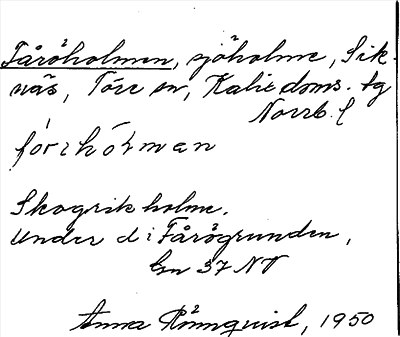 Fåröholmen, sjöholme, Sik-
näs, Töre sn, Kalix doms. tg
Norrb. l
fórzhó̀ɫman
Skogrik holme.
Under d i Fårögrunden,
En 37 NV
Anna Rönnquist, 1950